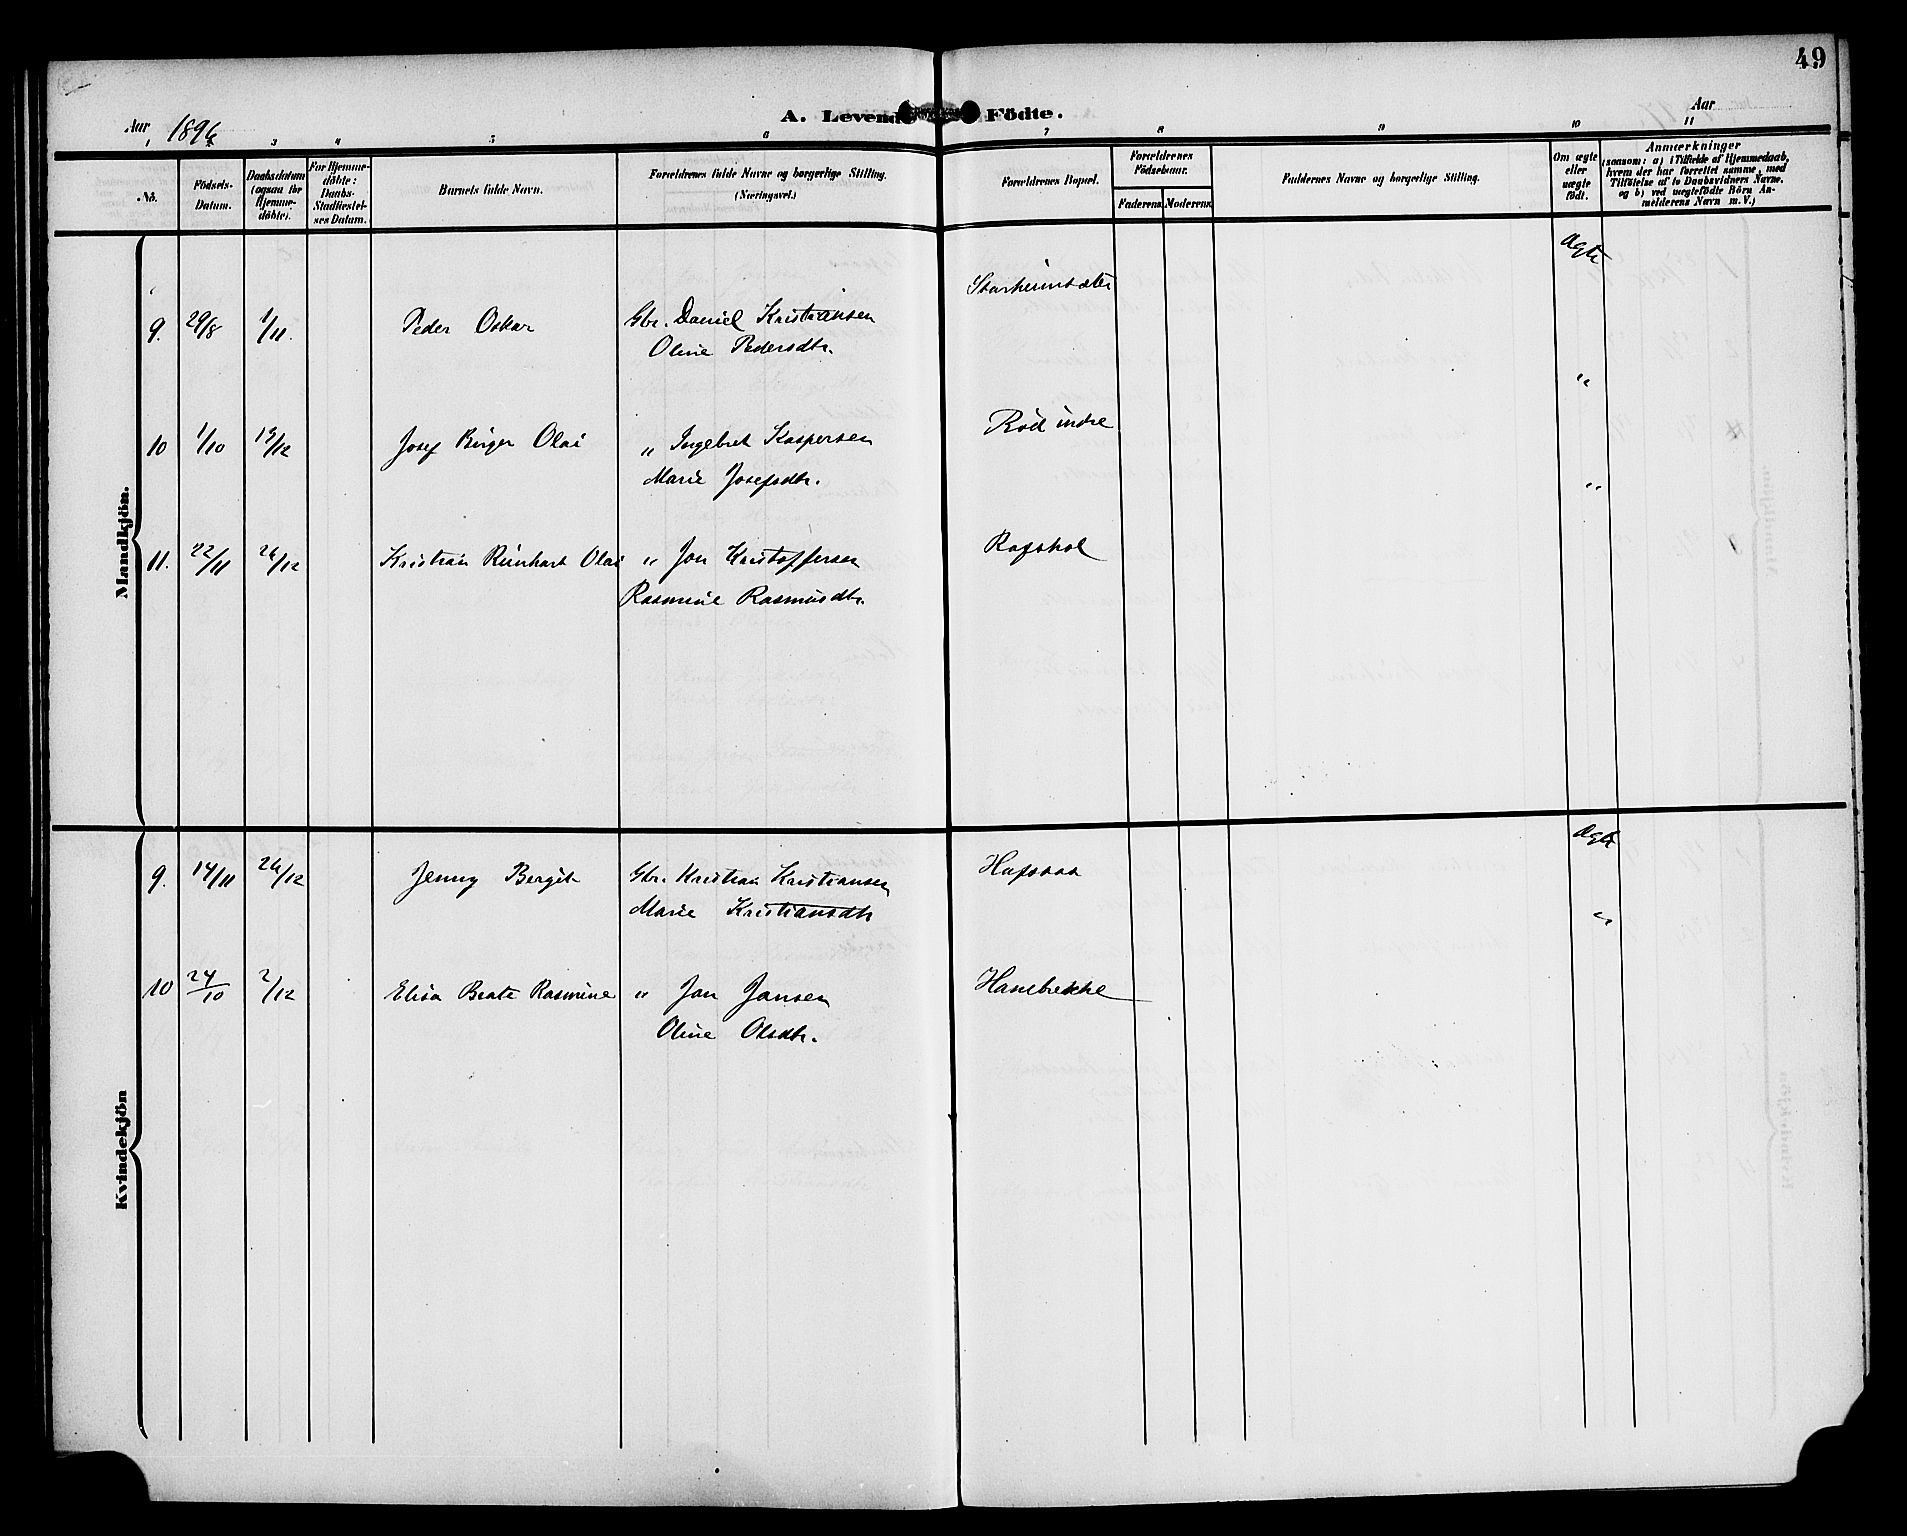 49
Aar 1896
A. Levende Födte.
Aar
1 3 4 5 6 7 8 9 10 11
No.
Födsels-Datum.
Daabsdatum (ogsaa for Hjemmedöbte).
For Hjemmedöbte: Daabs-Stadfæstelses Datum.
Barnets fulde Navn.
Forældrenes fulde Navne og borgerlige Stilling. (Næringsvei.)
Forældrenes Bopæl.
Forældrenes Födselsaar.
Faderens. Moderens.
Faddernes Navne og borgerlige Stilling.
Om ægte eller uægte födt.
Anmærkninger (saasom: a) i Tilfælde af Hjemmedaab, hvem der har forrettet samme, med Tilföielse af to Daabsvidners Navne, og b) ved uægtefödte Börn Anmelderens Navn m. V.)
Mandkjön.
Ægte
9. 29/8 1/11. Peder Oskar Gbr. Daniel Kristiansen
Oline Pedersdtr.
10 1/10 19/12 Josef Birger Olai " Ingebret Kaspersen Röd indre "
Marie Josefsdtr.
11. 22/11 26/12 Kristian Reinhart Olai " Jon Kristoffersen Rafshol "
Rasmine Rasmusdtr.
Kvindekjön
9. 14/11 26/12 Jenny Bergit Gbr. Kristian Kristiansen Hafsaas Ægte
Marie Kristiansdtr
10 24/10 2/12 Elisa Beate Rasmine " Jon Jonsen Hanebrekke "
Oline Olsdtr.